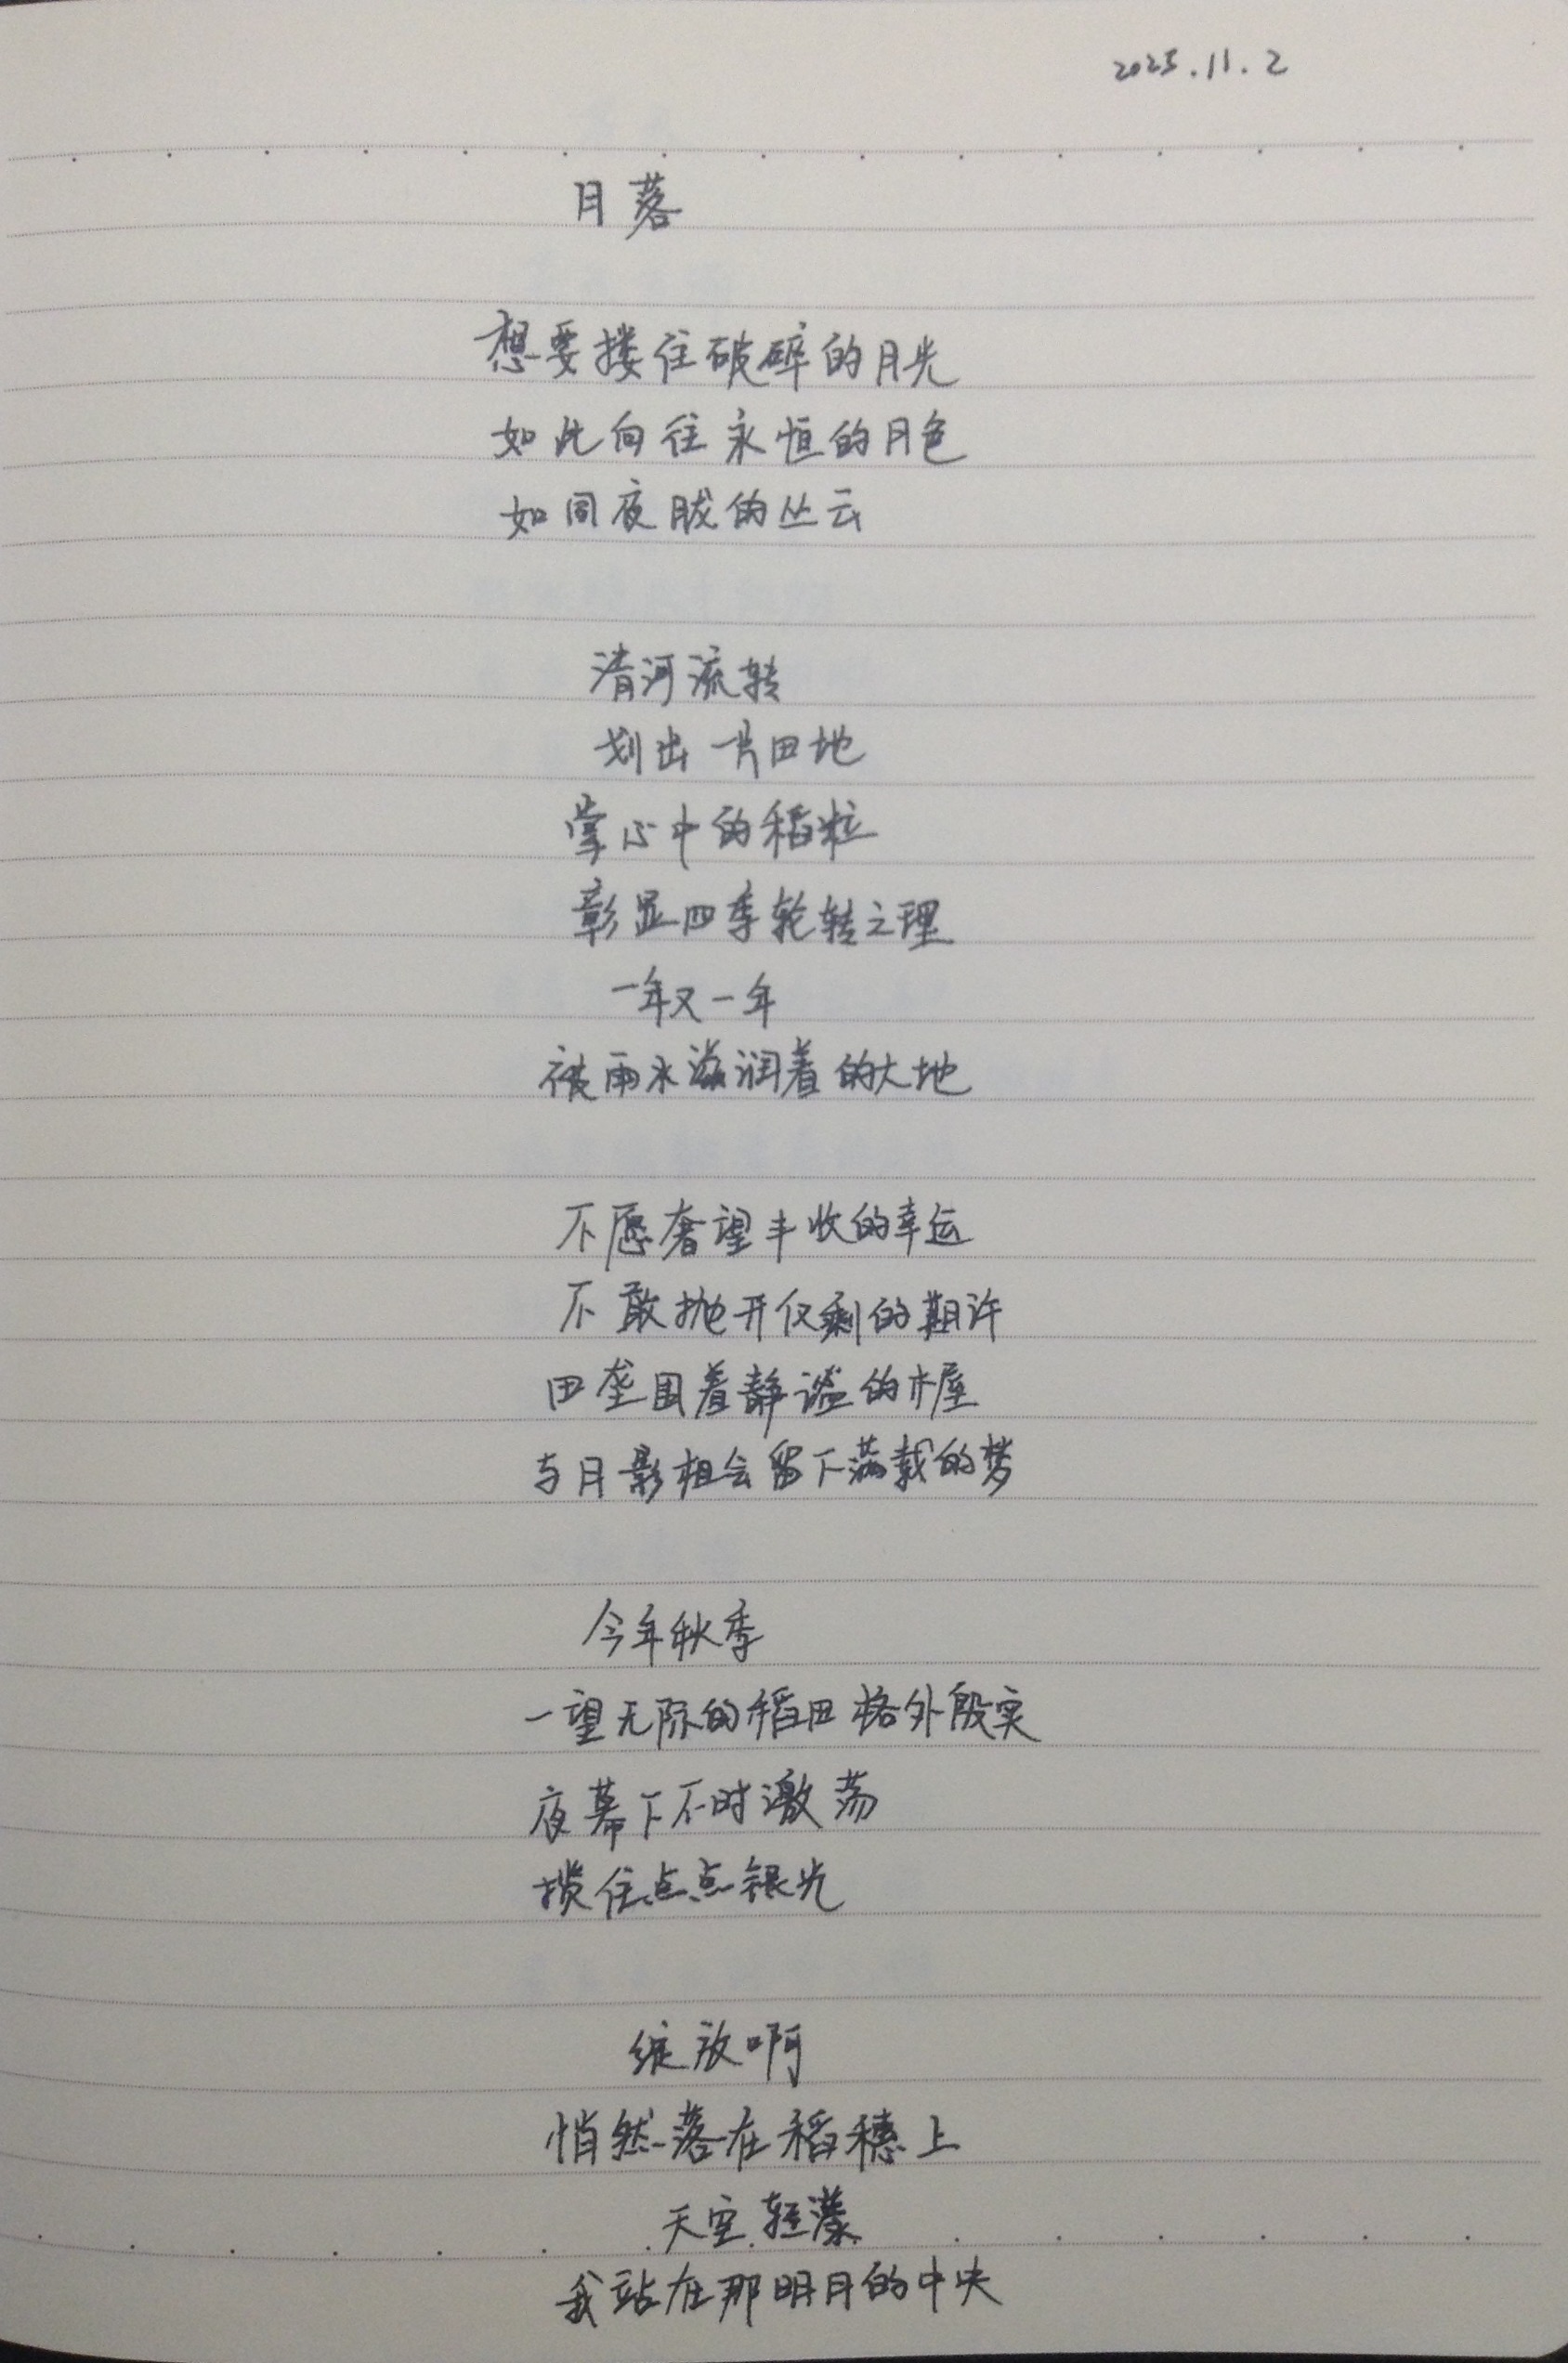 2025.11.2
月落
想要搂住破碎的月光
如此向往永恒的月色
如同夜胧的丛云
清河流转
划出一片田地
掌心中的稻粒
彰显四季轮转之理
一年又一年
被雨水滋润着的大地
不愿奢望丰收的幸运
不敢抛开仅剩的期许
田垄围着静谧的木屋
与月影相会留下满载的梦
今年秋季
一望无际的稻田格外殷实
夜幕下不时激荡
揽住点点银光
绽放啊
悄然落在稻穗上
天空轻漾
我站在那明月的中央